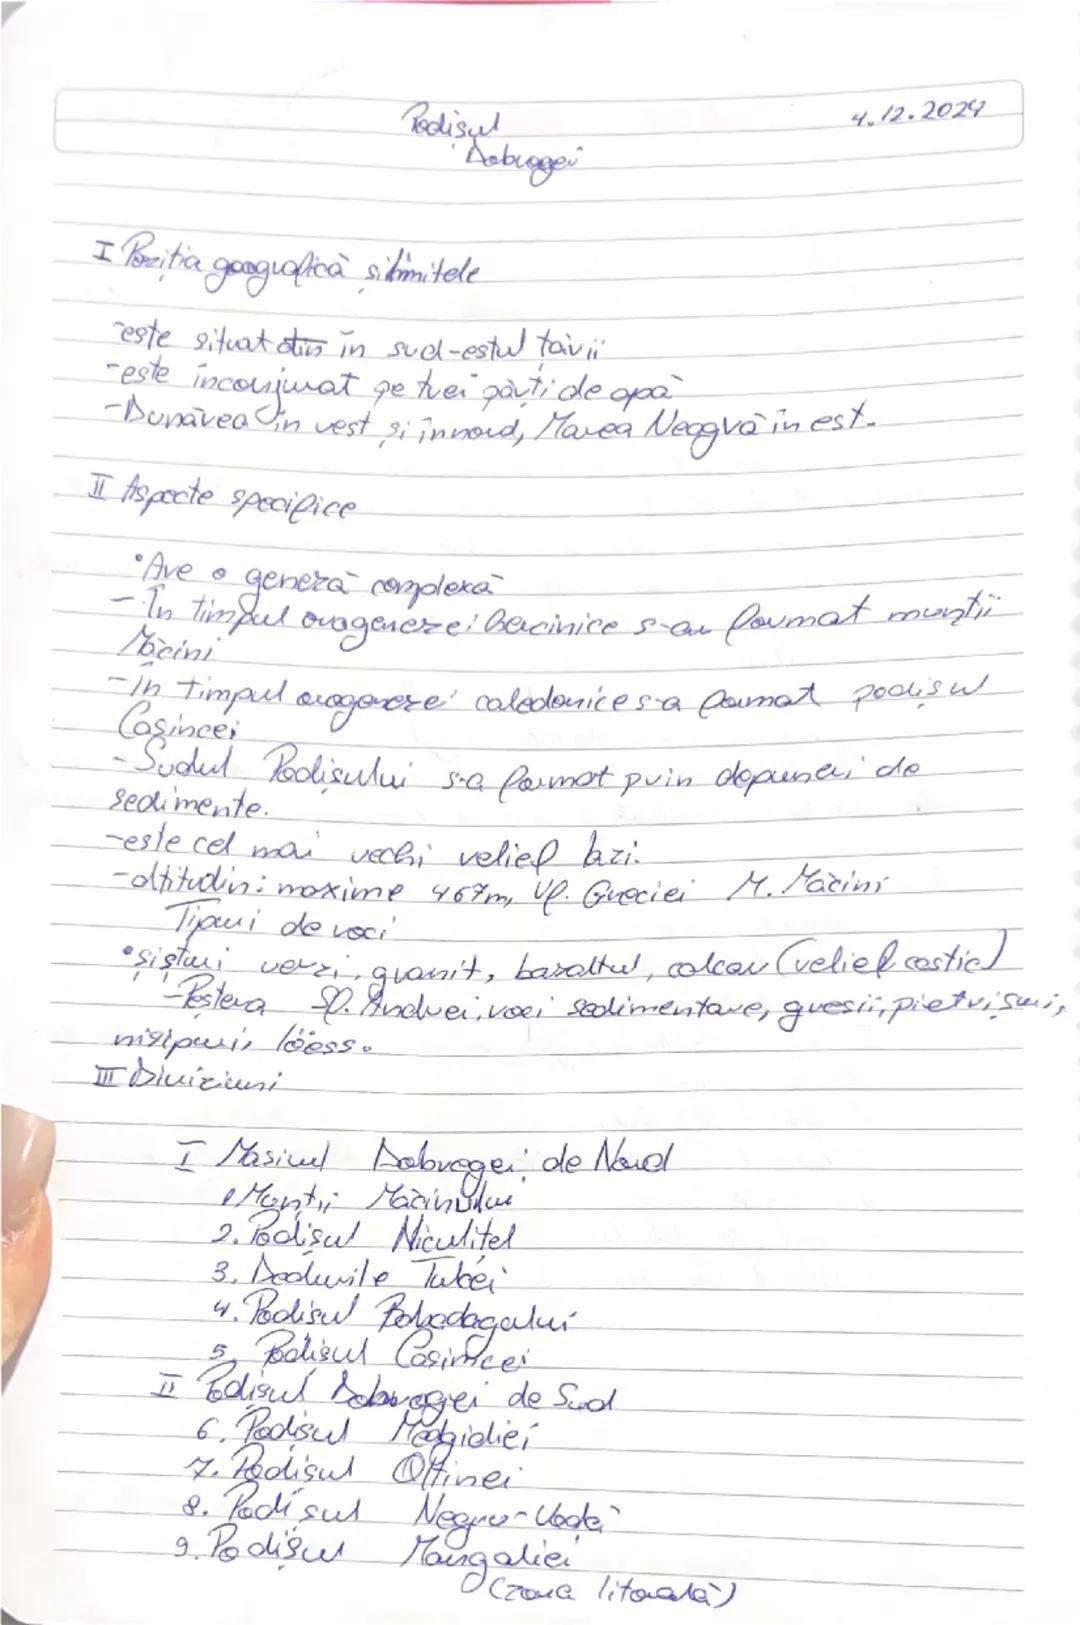 Podișul
Dobrogei
4.12.2024
I Poziția geografică și limitele
-este situat din în sud-estul țării
-este inconjurat pe trei părți de apă
-Dunărea în vest și în nord, Marea Neagră în est.
II Aspecte specifice
•Are o geneză complexă
-În timpul orogenezei hercinice s-au format munții
Măcini
-În timpul orogenezei caledonice s-a format podișul
Casincei
-Sudul Podișului s-a format prin depuneri de
sedimente.
-este cel mai vechi relief azi.
-altitudini maxime 467m, Vf. Greciei M. Măcini
Tipuri de roci
•șisturi verzi, granit, bazaltul, calcar (relief castic)
-Peștera Sf. Andrei, roci sedimentare, gresii, pietrișuri,
nisipuri, löess.
III Diviziuni
I Masivul Dobrogei de Nord
1 Munții Măcinului
2. Podișul Niculițel
3. Dealurile Tulcei
4. Podișul Babadagului
5. Podișul Casimcei
II Podișul Dobrogei de Sud
6. Podișul Medgidiei
7. Podișul Oltinei
8. Podișul Negru-Vodă
9. Podișul Mangaliei
(zona litorală)